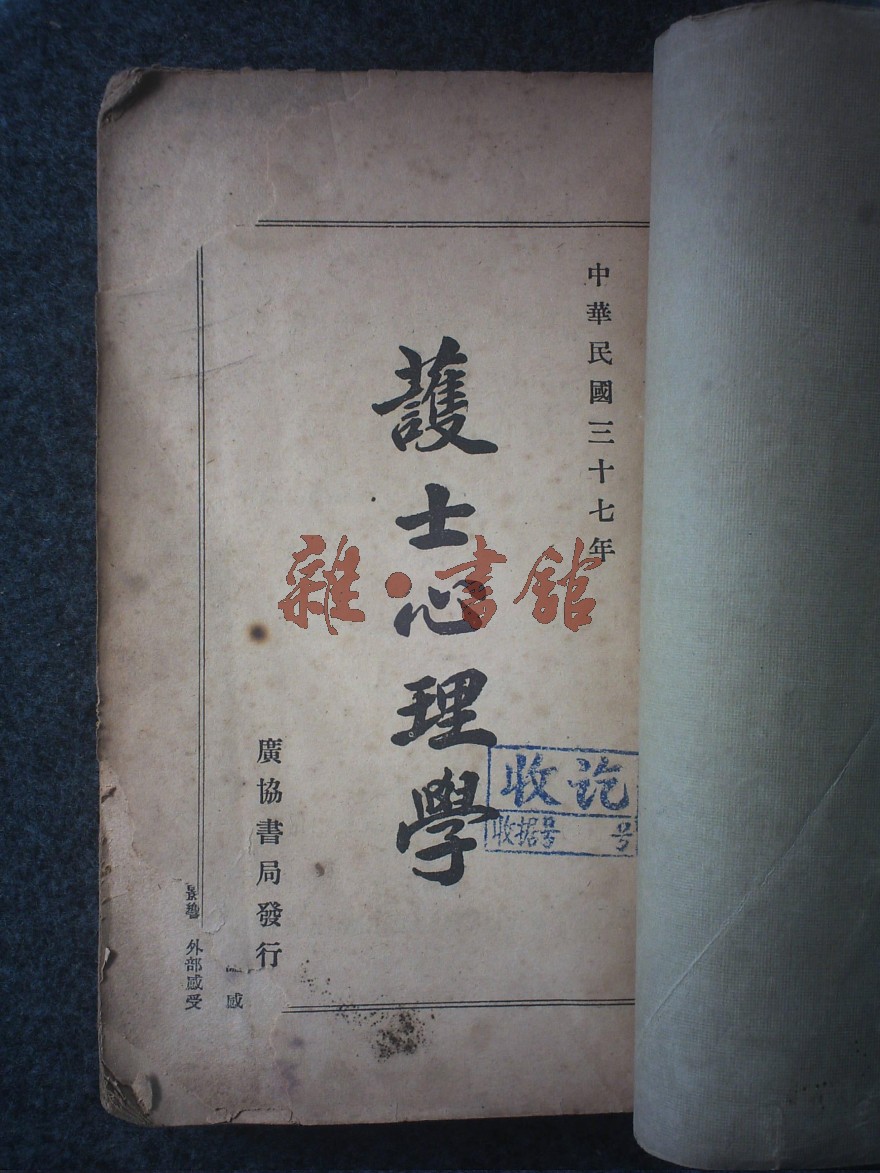 中華民國三十七年
護士心理學
廣協書局發行
雜·書館
收讫
收据号 号
感
外部感受